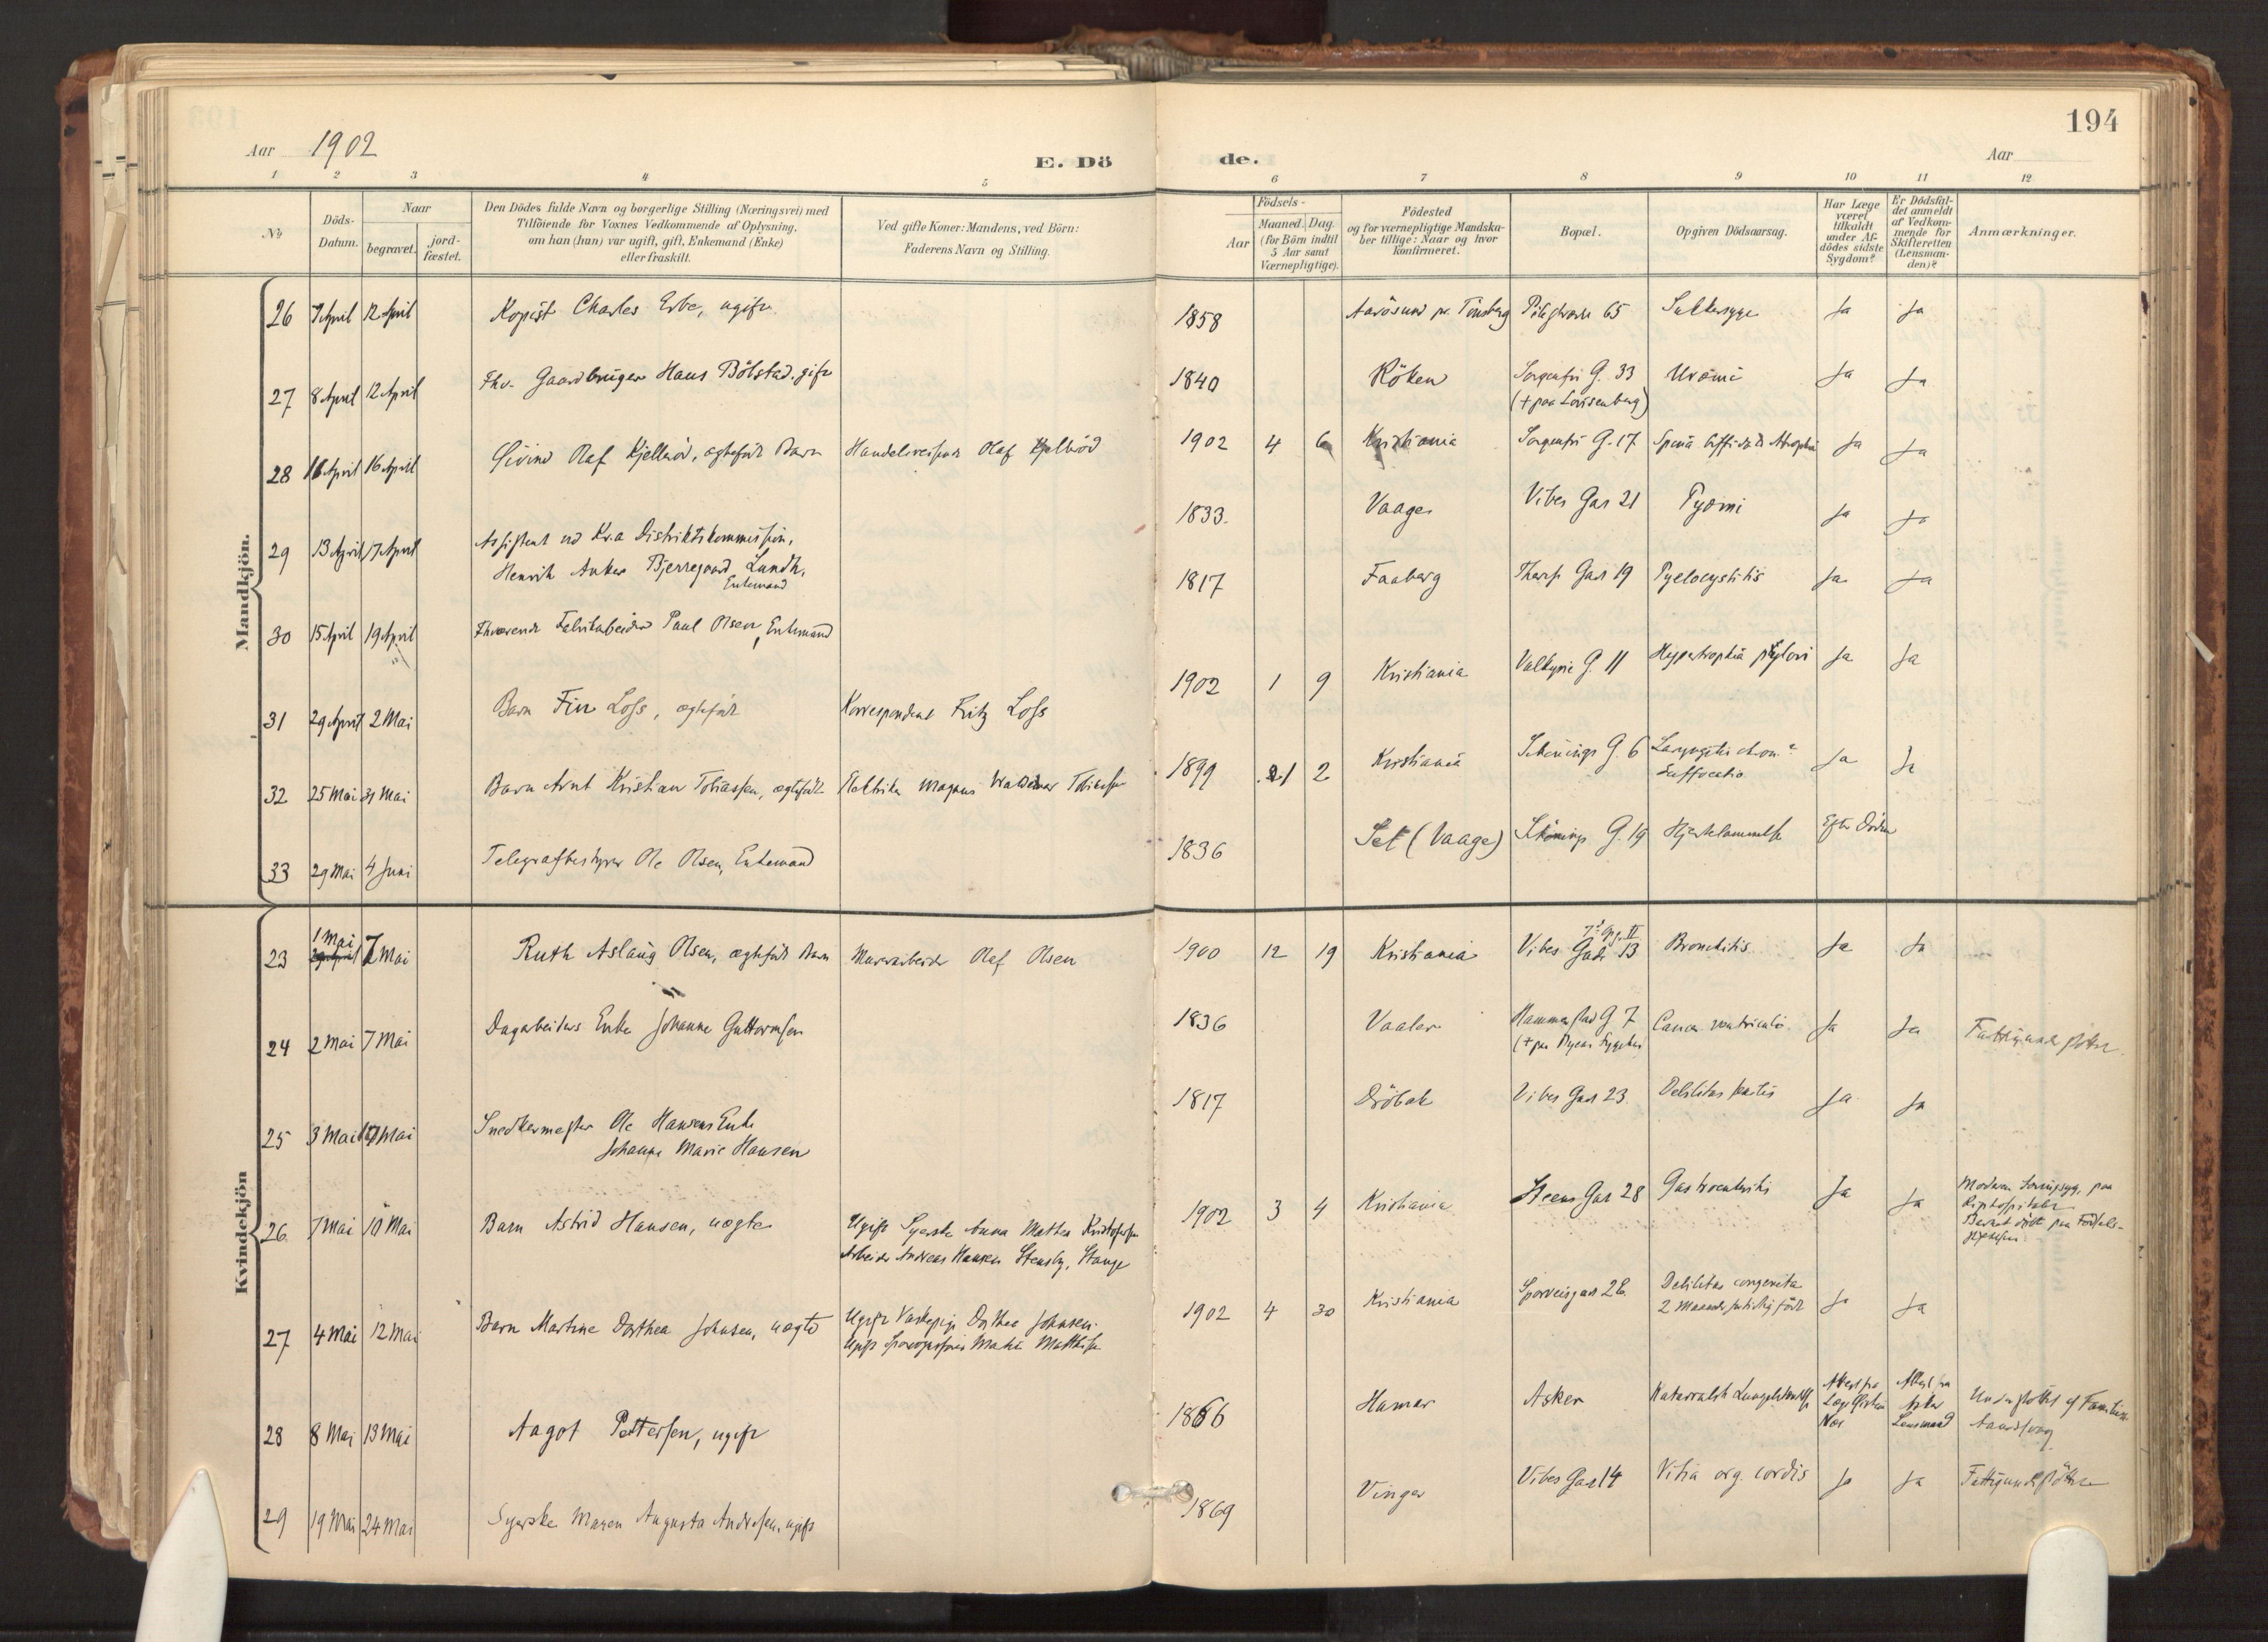 194
Aar 1902
E. Dö de.
Aar
1 2 3 4 5 6 7 8 9 10 11 12
№
Döds-Datum.
Naar
begravet.
jord-fæstet.
Den Dödes fulde Navn og borgerlige Stilling (Næringsvei) med
Tilföiende for Voxnes Vedkommende af Oplysning,
om han (hun) var ugift, gift, Enkemand (Enke)
eller fraskilt.
Ved gifte Koner: Mandens, ved Börn:
Faderens Navn og Stilling.
Födsels-
Aar
Maaned. Dag.
(for Börn indtil
5 Aar samt
Værnepligtige).
Födested
og for værnepligtige Mandska-
ber tillige: Naar og hvor
konfirmeret.
Bopæl.
Opgiven Dödsaarsag.
Har Læge
været
tilkaldt
under Af-
dödes sidste
Sygdom?
Er Dödsfal-
det anmeldt
af Vedkom-
mende for
Skifteretten
(Lensman-
den)?
Anmærkninger.
Mandkjön.
26 7 April 12 April Kopist Charles Erbe, ugift 1858 Aarösund pr. Tönsberg Pilestrædet 65 Sukkersyge Ja Ja
27 8 April 12 April Fhv. Gaardbruger Hans Bölstad, gift 1840 Röken Sorgenfri G. 33 Urämi Ja Ja
(+ paa Lovisenberg)
28 11 April 16 April Eivind Olaf Kjelleröd, ægtefödt Barn Handelsreisende Olaf Kjelleröd 1902 4 6 Kristiania Sorgenfri G. 17 Spina bifida Atrophia Ja Ja
29 13 April 17 April Assistent ved Kr.a Distriktskommission,
Henrik Anker Bjerregaard Lundh,
Enkemand 1833. Vaage Vibes Gade 21 Pyæmi Ja Ja
30 15 April 19 April Fhværende Fabrikarbeider Paul Olsen, Enkemand 1817 Faaberg Therese Gade 19 Pyelocystitis Ja Ja
31 29 April 2 Mai Barn Fin Loss, ægtefödt Korrespondent Fritz Loss 1902 1 9 Kristiania Valkyrie G. 11 Hypertrophia pylori Ja Ja
32 25 Mai 31 Mai Barn Arnt Kristian Tobiassen, ægtefödt Elektriker Magnus Waldemar Tobiassen 1899 21 2 Kristiania Schönings G. 6 Laryngitis chron.
Suffocatio Ja Ja
33 29 Mai 4 Juni Telegrafbestyrer Ole Olsen, Enkemand 1836 Sel (Vaage) Schönings G. 19 Hjertelammelse Efter Döden
Kvindekjön
23 1 Mai 7 Mai Ruth Aslaug Olsen, ægtefödt Barn Murarbeider Olaf Olsen 1900 12 19 Kristiania Vibes Gade 13 Bronchitis Ja Ja
24 2 Mai 7 Mai Dagarbeiders Enke Johanne Guttormsen 1836 Vaaler Hammerstad G. 7 Cancer ventriculi Ja Ja Fattigunderstöttet
25 3 Mai 7 Mai Snedkermester Ole Hansens Enke
Johanne Marie Hansen 1817 Dröbak Vibes Gade 23 Debilitas senilis Ja Ja
26 7 Mai 10 Mai Barn Astrid Hansen, uægte Ugift Syerske Anna Mathea Kristofersen
Arbeider Andreas Hansen Stensby, Stange 1902 3 4 Kristiania Steens Gade 28 Gastroenteritis Ja Ja Moderen paa
Rigshospitalet
Barnet födt paa Födsels-
27 4 Mai 12 Mai Barn Martine Dorthea Johnsen, uægte Ugift Vaskepige Dorthea Johnsen
1902 4 30 Kristiania Sporveisgade 2 Debilitas congenita
2 Maaneder for tidlig födt Ja Ja
28 8 Mai 13 Mai Aagot Pettersen, ugift 1866 Hamar Asker Katarralsk Lungebetændelse Attest fra
Læge
Attest fra
Asker
Lensmand Understöttet af
29 19 Mai 24 Mai Syerske Maren Augusta Andersen, ugift 1869 Vinger Vibes Gade 14 Vitia org. cordis Ja Ja Fattigunderstöttet